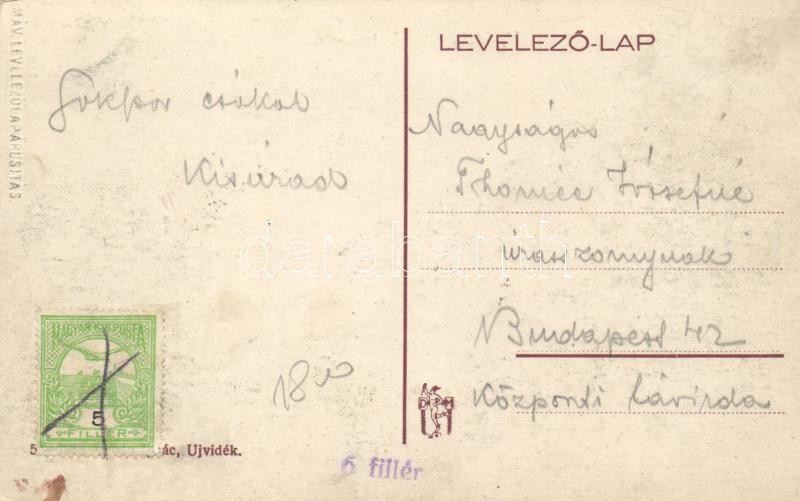 MÁV. LEVELEZŐLAPÁRUSITÁS
LEVELEZŐ-LAP
Sokszor csókol
Kisúrad
Nagyságos
Thomée Józsefné
úrasszonynak
Budapest 42
Központi távirda
darabanth
MAGYAR KIR. POSTA
5
FILLÉR
18
D M
5
ác, Ujvidék.
6 fillér